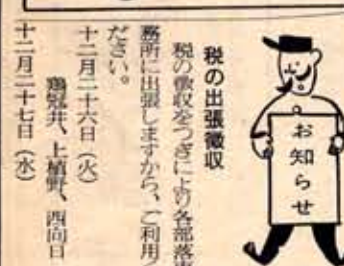 お知らせ
税の出張徴収
税の徴収をつぎにより各部落事
務所に出張しますから、ご利用く
ださい。
十二月二十六日（火）
鶏冠井、上植野、西向日
十二月二十七日（水）